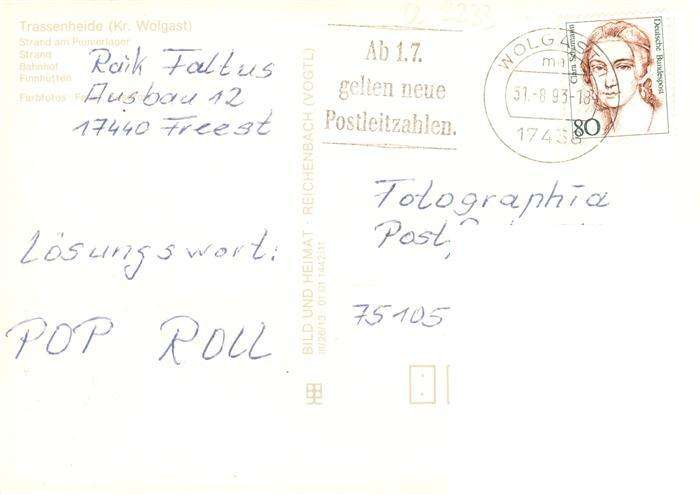 Trassenheide (Kr. Wolgast)
Strand am Pionierlager
Strand
Bahnhof
Finnhütten
Raik Faltus
Ausbau 12
17440 Freest
Lösungswort:
POP ROLL
BILD UND HEIMAT · REICHENBACH (VOGTL)
Ab 1.7.
gelten neue
Postleitzahlen.
WOLGAST
31.-8.93-18
17438
Deutsche Bundespost
Clara Schumann
80
Fotographia
Post
75105